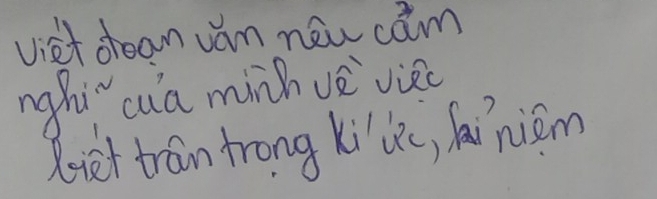 viết đoạn văn nêu cảm
nghĩ của mình về việc
biết trân trọng kí ức, kỉ niệm